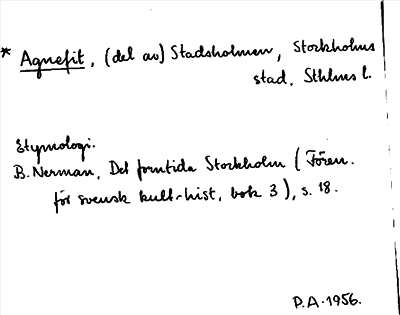 * Agnefit, (del av) Stadsholmen, Stockholms
stad, Sthlms l.
Etymologi.
B. Nerman, Det forntida Stockholm (Fören.
för svensk kult-hist, bok 3), s. 18.
P.A. 1956.